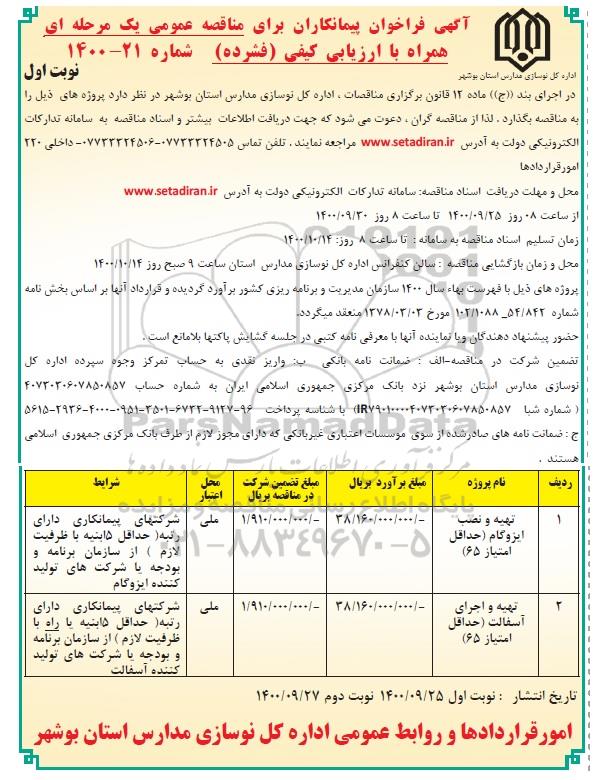 آگهی فراخوان پیمانکاران برای مناقصه عمومی یک مرحله ای
همراه با ارزیابی کیفی (فشرده) شماره ۲۱-۱۴۰۰
نوبت اول
اداره کل نوسازی مدارس استان بوشهر
در اجرای بند ((ج)) ماده ۱۲ قانون برگزاری مناقصات ، اداره کل نوسازی مدارس استان بوشهر در نظر دارد پروژه های ذیل را
به مناقصه بگذارد . لذا از مناقصه گران ، دعوت می شود که جهت دریافت اطلاعات بیشتر و اسناد مناقصه به سامانه تدارکات
الکترونیکی دولت به آدرس www.setadiran.ir مراجعه نمایند . تلفن تماس ۰۷۷۳۳۳۲۴۵۰۵-۰۷۷۳۳۳۲۴۵۰۶ داخلی ۲۲۰
امورقراردادها
محل و مهلت دریافت اسناد مناقصه: سامانه تدارکات الکترونیکی دولت به آدرس www.setadiran.ir
از ساعت ۰۸ روز ۱۴۰۰/۰۹/۲۵ تا ساعت ۸ روز ۱۴۰۰/۰۹/۳۰
زمان تسلیم اسناد مناقصه به سامانه : تا ساعت ۸ روز: ۱۴۰۰/۱۰/۱۴
محل و زمان بازگشایی مناقصه : سالن کنفرانس اداره کل نوسازی مدارس استان ساعت ۹ صبح روز ۱۴۰۰/۱۰/۱۴
پروژه های ذیل با فهرست بهاء سال ۱۴۰۰ سازمان مدیریت و برنامه ریزی کشور برآورد گردیده و قرارداد آنها بر اساس بخش نامه
شماره ۵۴/۸۴۲_ ۱۰۲/۱۰۸۸ مورخ ۱۳۷۸/۰۳/۰۳ منعقد میگردد.
حضور پیشنهاد دهندگان ویا نماینده آنها با معرفی نامه کتبی در جلسه گشایش پاکتها بلامانع است .
تضمین شرکت در مناقصه-الف : ضمانت نامه بانکی ب: واریز نقدی به حساب تمرکز وجوه سپرده اداره کل
نوسازی مدارس استان بوشهر نزد بانک مرکزی جمهوری اسلامی ایران به شماره حساب ۴۰۷۳۰۳۰۶۰۷۸۵۰۸۵۷
( شماره شبا IR۷۹۰۱۰۰۰۰۴۰۷۳۰۳۰۶۰۷۸۵۰۸۵۷) با شناسه پرداخت ۹۶-۹۱۲۷-۶۷۳۲-۳۵۰۱-۰۹۵۱-۴۰۰۰-۲۹۳۶-۵۶۱۵
ج : ضمانت نامه های صادرشده از سوی موسسات اعتباری غیربانکی که دارای مجوز لازم از طرف بانک مرکزی جمهوری اسلامی
هستند .
ردیف نام پروژه مبلغ برآورد بریال مبلغ تضمین شرکت در مناقصه بریال محل اعتبار شرایط
۱ تهیه و نصب ایزوگام (حداقل امتیاز ۶۵) ۳۸/۱۶۰/۰۰۰/۰۰۰/- ۱/۹۱۰/۰۰۰/۰۰۰/- ملی شرکتهای پیمانکاری دارای
رتبه( حداقل ۵ابنیه با ظرفیت
لازم ) از سازمان برنامه و
بودجه یا شرکت های تولید
کننده ایزوگام
۲ تهیه و اجرای آسفالت (حداقل امتیاز ۶۵) ۳۸/۱۶۰/۰۰۰/۰۰۰/- ۱/۹۱۰/۰۰۰/۰۰۰/- ملی شرکتهای پیمانکاری دارای
رتبه( حداقل ۵ابنیه یا راه با
ظرفیت لازم ) از سازمان برنامه
و بودجه یا شرکت های تولید
کننده آسفالت
تاریخ انتشار : نوبت اول ۱۴۰۰/۰۹/۲۵ نوبت دوم ۱۴۰۰/۰۹/۲۷
امورقراردادها و روابط عمومی اداره کل نوسازی مدارس استان بوشهر
ParsNamadData
۰۲۱-۸۸۳۴۹۶۷۰-۵